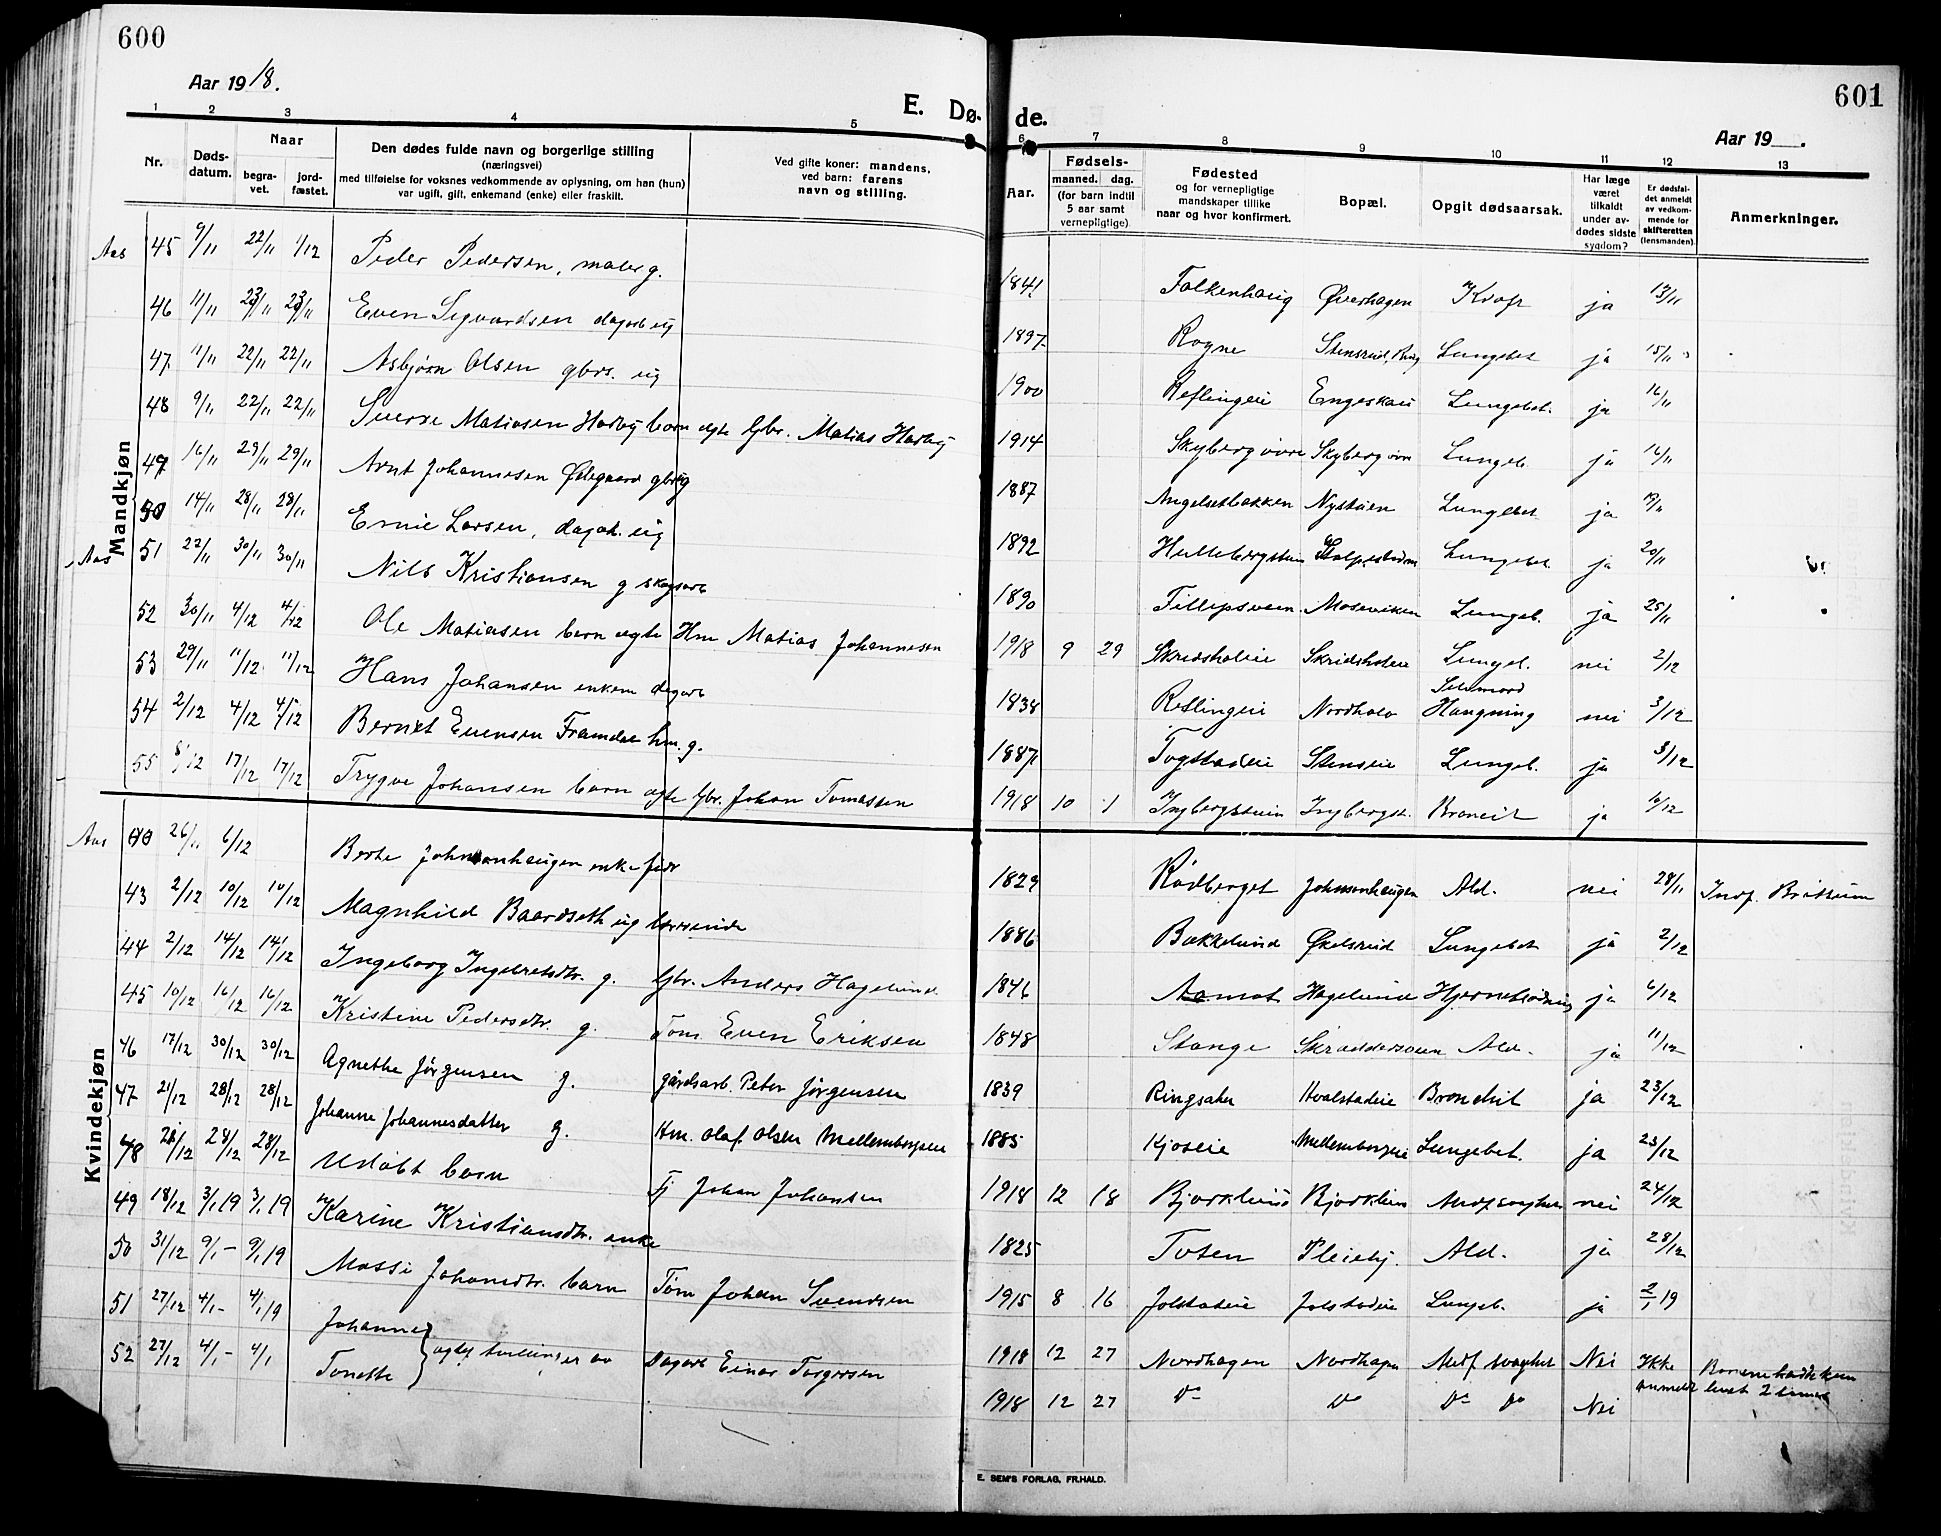 600
Aar 1918.
E. Dø-
1 2 3 4 5
Nr.
Døds-
datum.
Naar
begra-
vet.
jord-
fæstet.
Den dødes fulde navn og borgerlige stilling
(næringsvei)
med tilføielse for voksnes vedkommende av oplysning, om han (hun)
var ugift, gift, enkemand (enke) eller fraskilt.
Ved gifte koner: mandens,
ved barn: farens
navn og stilling.
Mandkjøn
Aas 45 9/11 22/11 1/12 Peder Pedersen, maler g.
46 11/11 23/11 23/11 Even Sigvardsen dagarb ug
47. 11/11 22/11 22/11 Asbjørn Olsen gbrs. ug
48 9/11 22/11 22/11 Sverre Matiasen Horby barn ægte Gbr. Matias Horby
49 16/11 29/11 29/11 Arnt Johannesen Ødegaard gbr ug
50 14/11 28/11 28/11 Ernie Larsen, dagarb. ug
Aas 51 22/11 30/11 30/11 Nils Kristiansen g skogsarb
52 30/11 4/12 4/12 Ole Matiasen barn ægte Hm Matias Johannesen
53 29/11 11/12. 11/12 Hans Johansen enkem dagarb
54 2/12 4/12 4/12 Bernt Evensen Framdal hm. g.
55 8/12 17/12 17/12 Trygve Johansen barn ægte Gbr. Johan Tomassen
Kvindekjøn
Aas 26/11 6/12 Berte Johnsonhaugen enke
43 2/12 10/12 10/12 Magnhild Baardseth ug lærerinde
44 2/12 14/12 14/12 Ingeborg Ingebretsdtr. g. Gbr. Anders Hagelund
45 10/12 16/12 16/12 Kristine Pedersdtr. g. Tøm. Even Eriksen
46 17/12 30/12 30/12 Agnethe Jørgensen g. gårdsarb. Peter Jørgensen
47 21/12 28/12 28/12 Johanne Johannesdatter g. Hm. Olaf Olsen Mellembergseie
48 28/12 28/12 Udøbt barn Tj Johan Johansen
49 18/12 3/1 19 3/1 19 Karine Kristiansdtr. enke
50 31/12 9/1 - 9/1 19 Mossi Johansdtr. barn Tøm Johan Svendsen
51 27/12 4/1 - 4/1 19 Johanne
52 27/12 4/1 - 4/1 Tonette } ægte tvillinger av Dagarb Einar Torgersen
601
de.
Aar 19 .
6 7 8 9 10 11 12 13
Aar.
Fødsels-
maaned. dag.
(for barn indtil
5 aar samt
vernepligtige)
Fødested
og for vernepligtige
mandskaper tillike
naar og hvor konfirmert.
Bopæl.
Opgit dødsaarsak.
Har læge
været
tilkaldt
under av-
dødes sidste
sygdom?
Er dødsfal-
det anmeldt
av vedkom-
mende for
skifteretten
(lensmanden).
Anmerkninger.
1841 Falkenhaug Øverhagen Kræft ja 13/11
1897. Rogne Stensrud, Ring Lungebet ja 15/11
1900 Reflingeie Engeskau Lungebet. ja 16/11
1914 Skyberg øvre Skyberg øvre Lungeb. ja 16/11
1887 Angelsetbakken Nystuen Lungebet ja
1892 Hullebergstuen Stolpestuen Lungebet. ja 20/11
1890 Fillipsveen Moseviken Lungeb. ja 25/11
1918 9 29 Skridsholeie Skridsholeie Lungeb. nei 2/12
1838 Reflingeie Nordhalo Selvmord
Hængning nei 3/12
1887 Togstadeie Stenseie Lungeb. ja 3/12
1918 10 1 Ingbergstuen Ingbergst. Bronkit ja 10/12
1829 Rødberget Johnsonhaugen Ald. nei 28/11 Indf. Brøttum
1886 Bækkelund Økelsrud Lungebet ja 2/12
1846 Aamot Hagelund Hjerneblødning ja 6/12
1848 Stange Skræddersveen Ald. ja 11/12
1839 Ringsaker Hvalstadeie Bronchit ja 23/12
1885 Kjoseie Mellembergseie Lungebet. ja 23/12
1918 12 18 Bjørklund Bjørklund Medf. svaghet nei 24/12
1825 Toten Pleiehj. Ald. ja 28/12
1915 8 16 Jolstadeie Jolstadeie Lungeb. ja 2/1 19
1918 12 27 Nordhagen Nordhagen Medf. svaghet Nei Ikke anmeldt Barnene hadde kun
levet 2 timer
1918 12 27 Do Do Do Do Nei
E. SEM'S FORLAG, FR.HALD.